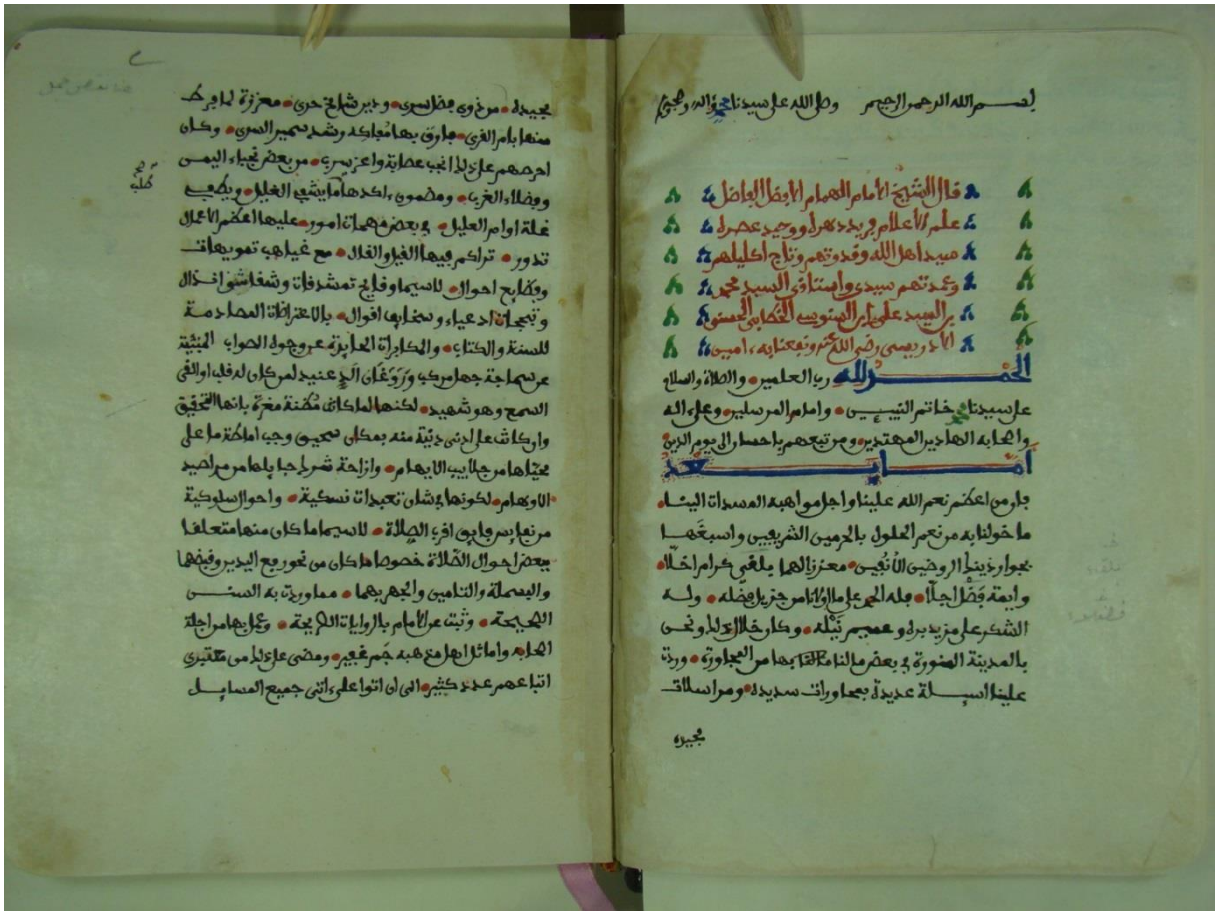 بسم الله الرحمن الرحيم وصلى الله على سيدنا محمد وءاله وصحبه
قال الشيخ الأمام الهمام الأفضل الفاضل
علم الأعلام فريد دهره ووحيد عصره
سيد اهل الله وقدوتهم وتاج اكليلهم
وعمدتهم سيدي واستاذي السيد محمد
بن السيد علي ابن السنوسي الخطابي الحسني
الادريسي رضي الله عنه ونفعنا به، امين
الحمد لله رب العلمين والصلاة والسلام
على سيدنا محمد خاتم النبيين وامام المرسلين وعلى اله
واصحابه الهادين المهتدين ومن تبعهم باحسان الى يوم الدين
أما بعد
فان من اعظم نعم الله علينا واجل مواهبه المسداة الينا
ما خولنا به من نعم الحلول بالحرمين الشريفين واسبغها
بجوار ذينك الروضين الأنفين معززا لهما بلقي كرام اخلا
وايمة فضل اجلا فله الحمد على ما اولانا من جزيل فضله وله
الشكر على مزيد بره وعميم نيله وكان خلال ذلك ونحن
بالمدينة المنورة في بعض ما لنا بها من المجاورة وردت
علينا اسيلة عديدة بمحاورات سديده ومراسلات
مجيده
مجيدة من ذوي فضل سرى ودين شامخ حرى معززة لما فرط
منها بام القرى وكان
احرصهم على ذلك انجب عصابة واعز سرى من بعض نجباء اليمن
وفضلاء الغرب ومضمون اكدها ما يشفي الغليل ويطفي
غلة اوام العليل في بعض مهمات امور عليها اعظم الأعمال
تدور تراكم فيها القيل والقال مع غياهب تمويهات
وفضايح احوال لاسيما وقايع تمشدقات وشقاشق انذال
وتبجحات ادعياء وسخايف اقوال بالاعتراضات المصادمة
للسنة والكتاب والمكابرات الحايدة عن وجوه الصواب المنبئة
عن سماجة جهل مركب وروغان الد عنيد لمن كان له قلب او القى
السمع وهو شهيد لكنها لما كانت مظنة مغرة بانها التحقيق
وان كانت على ادنى دنية منه بمكان سحيق وجب اماطة ما على
محياها من جلابيب الايهام وازاحة شرك حبايلها من مراصيد
الاوهام لكونها في شان تعبدات نسكية واحوال سلوكية
من نفايس الصلاة لاسيما ما كان منها متعلقا
ببعض احوال الصلاة خصوصا ما كان من نحو رفع اليدين وقبضهما
والبسملة والتامين والجهر بهما مما وردت به السنن
الصحيحة وثبت عن الأمام بالروايات الصريحة وعمل بها من اجلة
اصحابه واماثل اهل مذهبه جم غفير ومضى على ذلك من معتبري
اتباعهم عدد كثير الى ان اتوا على اتى جميع المسايل